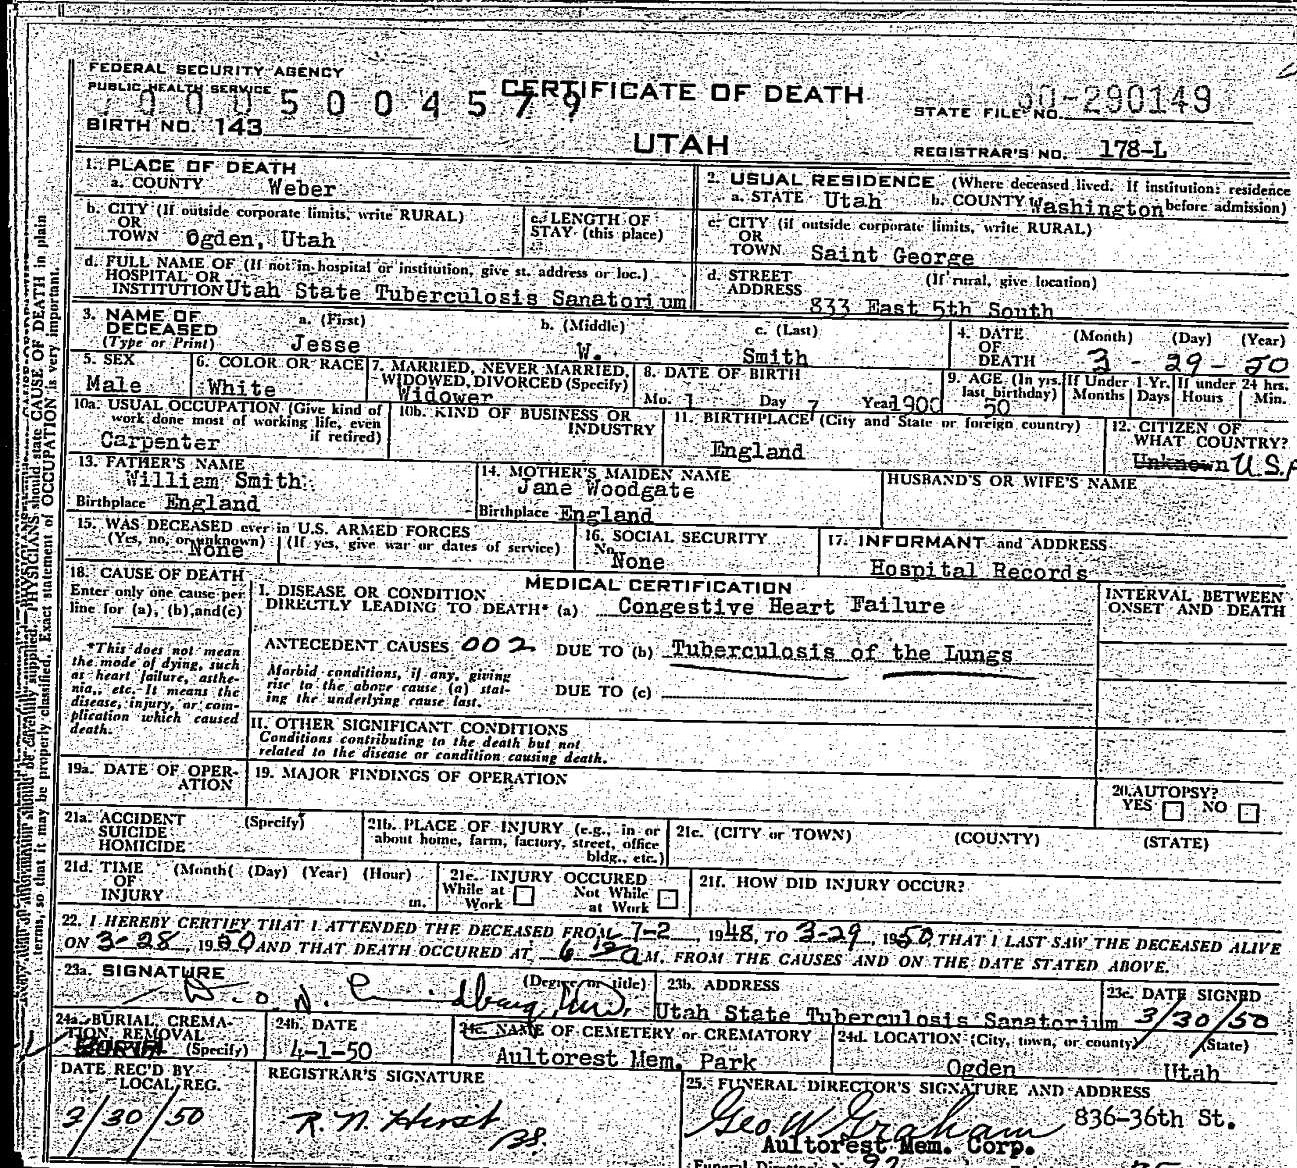 FEDERAL SECURITY AGENCY
PUBLIC HEALTH SERVICE
0005004579
CERTIFICATE OF DEATH
STATE FILE NO. 50-290149
BIRTH NO. 143
UTAH
REGISTRAR'S NO. 178-L
1. PLACE OF DEATH
a. COUNTY Weber
2. USUAL RESIDENCE (Where deceased lived. If institution: residence before admission)
a. STATE Utah b. COUNTY Washington
b. CITY (If outside corporate limits, write RURAL)
OR
TOWN Ogden, Utah
c. LENGTH OF
STAY (this place)
c. CITY (if outside corporate limits, write RURAL)
OR
TOWN Saint George
d. FULL NAME OF (If not in hospital or institution, give st. address or loc.)
HOSPITAL OR
INSTITUTION Utah State Tuberculosis Sanatorium
d. STREET (If rural, give location)
ADDRESS 833 East 5th South
3. NAME OF
DECEASED
(Type or Print)
a. (First) b. (Middle) c. (Last)
Jesse W. Smith
4. DATE (Month) (Day) (Year)
OF
DEATH 3-29-50
5. SEX
Male
6. COLOR OR RACE
White
7. MARRIED, NEVER MARRIED,
WIDOWED, DIVORCED (Specify)
Widower
8. DATE OF BIRTH
Mo. 1 Day 7 Year 1900
9. AGE (In yrs. last birthday)
50
If Under 1 Yr.
Months Days
If under 24 hrs.
Hours Min.
10a. USUAL OCCUPATION (Give kind of
work done most of working life, even
if retired)
Carpenter
10b. KIND OF BUSINESS OR
INDUSTRY
11. BIRTHPLACE (City and State or foreign country)
England
12. CITIZEN OF
WHAT COUNTRY?
Unknown U.S.A
13. FATHER'S NAME
William Smith
Birthplace England
14. MOTHER'S MAIDEN NAME
Jane Woodgate
Birthplace England
HUSBAND'S OR WIFE'S NAME
15. WAS DECEASED ever in U.S. ARMED FORCES
(Yes, no, or unknown) (If yes, give war or dates of service)
None
16. SOCIAL SECURITY
No.
None
17. INFORMANT and ADDRESS
Hospital Records
18. CAUSE OF DEATH
Enter only one cause per
line for (a), (b) and (c)
*This does not mean
the mode of dying, such
as heart failure, asthe-
nia, etc. It means the
disease, injury, or com-
plication which caused
death.
MEDICAL CERTIFICATION
I. DISEASE OR CONDITION
DIRECTLY LEADING TO DEATH* (a) Congestive Heart Failure
ANTECEDENT CAUSES 002 DUE TO (b) Tuberculosis of the Lungs
Morbid conditions, if any, giving
rise to the above cause (a) stat-
ing the underlying cause last.
DUE TO (c)
II. OTHER SIGNIFICANT CONDITIONS
Conditions contributing to the death but not
related to the disease or condition causing death.
INTERVAL BETWEEN
ONSET AND DEATH
19a. DATE OF OPER-
ATION
19. MAJOR FINDINGS OF OPERATION
20. AUTOPSY?
YES NO
21a. ACCIDENT (Specify)
SUICIDE
HOMICIDE
21b. PLACE OF INJURY (e.g., in or
about home, farm, factory, street, office
bldg., etc.)
21c. (CITY or TOWN) (COUNTY) (STATE)
21d. TIME (Month( (Day) (Year) (Hour)
OF
INJURY m.
21e. INJURY OCCURED
While at Work Not While at Work
21f. HOW DID INJURY OCCUR?
22. I HEREBY CERTIFY THAT I ATTENDED THE DECEASED FROM 7-2, 1948, TO 3-29, 1950, THAT I LAST SAW THE DECEASED ALIVE
ON 3-28, 1950 AND THAT DEATH OCCURED AT M. FROM THE CAUSES AND ON THE DATE STATED ABOVE.
23a. SIGNATURE (Degree or title)
23b. ADDRESS
Utah State Tuberculosis Sanatorium
23c. DATE SIGNED
3/30/50
24a. BURIAL, CREMA-
TION, REMOVAL
Burial (Specify)
24b. DATE
4-1-50
24c. NAME OF CEMETERY or CREMATORY
Aultorest Mem. Park
24d. LOCATION (City, town, or county) (State)
Ogden Utah
DATE REC'D BY
LOCAL REG.
3/30/50
REGISTRAR'S SIGNATURE
R. N. Hirst
25. FUNERAL DIRECTOR'S SIGNATURE AND ADDRESS
Geo W Graham 836-36th St.
Aultorest Mem. Corp.